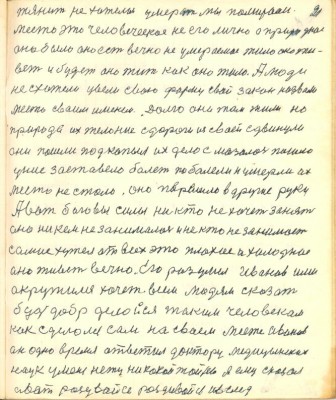 тянит не хотелся умерат мы помираем.
место это человеческая не его лично а природная
она было оно есть вечно не умераемая жило оно жи-
вет и будет оно жит как оно жило. А люди
не схотели увели свою форму свой закон назвали
место своим именем. Долго они там жили но
природа их тело с дороги их своей сдвинула
они пошли под их дело с пошло
уние заставело балет поболели и умерли их
место не стало. оно перешло в другие руки
А вот боговы силы ни кто не хочет занят
оно ни кем не занималос и не кто не занимает
самие хужея ото всех это плохие и холодная
оно живёт вечно. Его разумия Иванов или
окружиля хочет всем людям сказат
буд добр делойся таким человекам
как сделолся сам на своем месте Иванов
он одно время ответил доктору медицынских
наук у меня нету никокой тойны я ему сказал
сват розувайся роздивайся и вслед